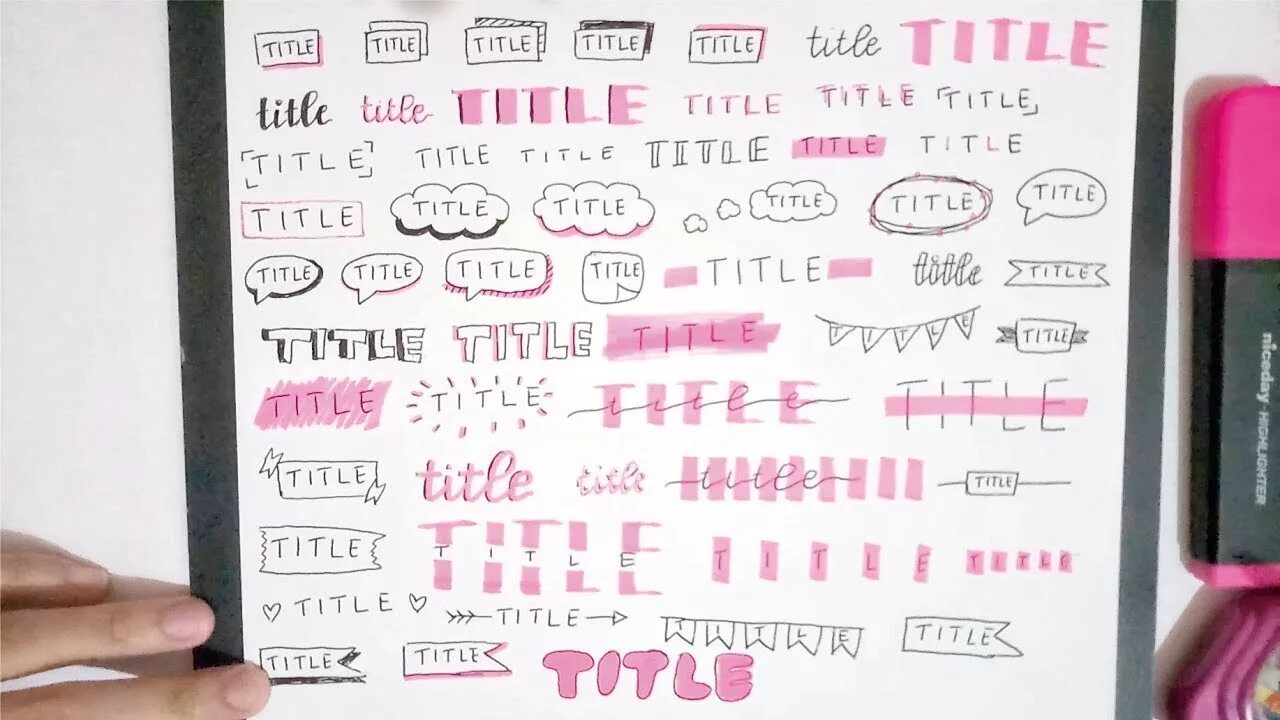 TITLE TITLE TITLE TITLE TITLE title TITLE
title title TITLE TITLE TITLE TITLE
TITLE TITLE TITLE TITLE TITLE TITLE
TITLE TITLE TITLE TITLE TITLE TITLE
TITLE TITLE TITLE TITLE TITLE title TITLE
TITLE TITLE TITLE TITLE TITLE
TITLE TITLE TITLE title TITLE
TITLE title title title TITLE
TITLE TITLE TITLE TITLE TITLE
TITLE TITLE TITLE TITLE
TITLE TITLE TITLE
niceday HIGHLIGHTER